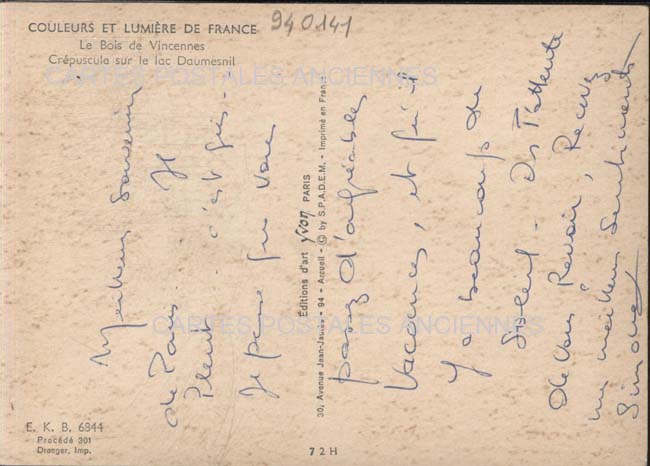 940141
COULEURS ET LUMIÈRE DE FRANCE
Le Bois de Vincennes
Crépuscule sur le lac Daumesnil
CARTES POSTALES ANCIENNES
Meilleur Souvenir
de Paris - Il
Pleut - c'est gris -
Je pense que vous
Éditions d'art yvon PARIS
30, Avenue Jean-Jaurès - 94 - Arcueil - © by S.P.A.D.E.M. - Imprimé en France
passez d'agréables
Vacances, et qu'il
y a beaucoup de
Soleil - Dans l'attente
de Vous Revoir, Recevez
mes meilleurs Sentiments
Simone
CARTES POSTALES ANCIENNES
E. K. B. 6844
Procédé 301
Draeger, Imp.
72H